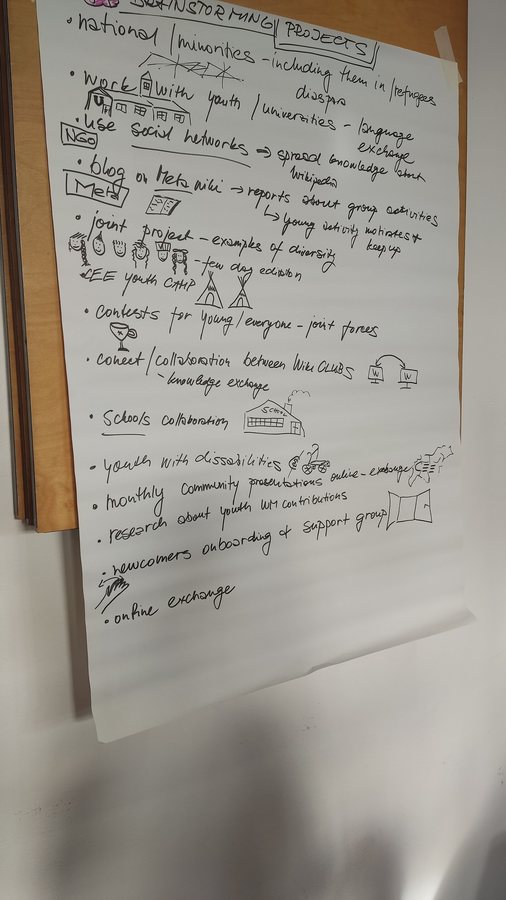 BRAINSTORMING PROJECTS
• national /minorities - including them in /refugees
diaspora
• work with youth /universities - language
exchange
• use social networks → spread knowledge about
NGO
Wikipedia
• blog on Meta wiki → reports about group activities
Meta
↳ young activity motivates &
keep up
• joint project - examples of diversity
- few day edition
CEE youth CAMP
• contests for young/everyone - joint forces
• conect/collaboration between Wiki CLUBS
- knowledge exchange
W W
• Schools collaboration
SCHOOL
• youth with dissabilities
• monthly community presentations online - exchange
• research about youth WM contributions
• newcomers onboarding & support group
• online exchange